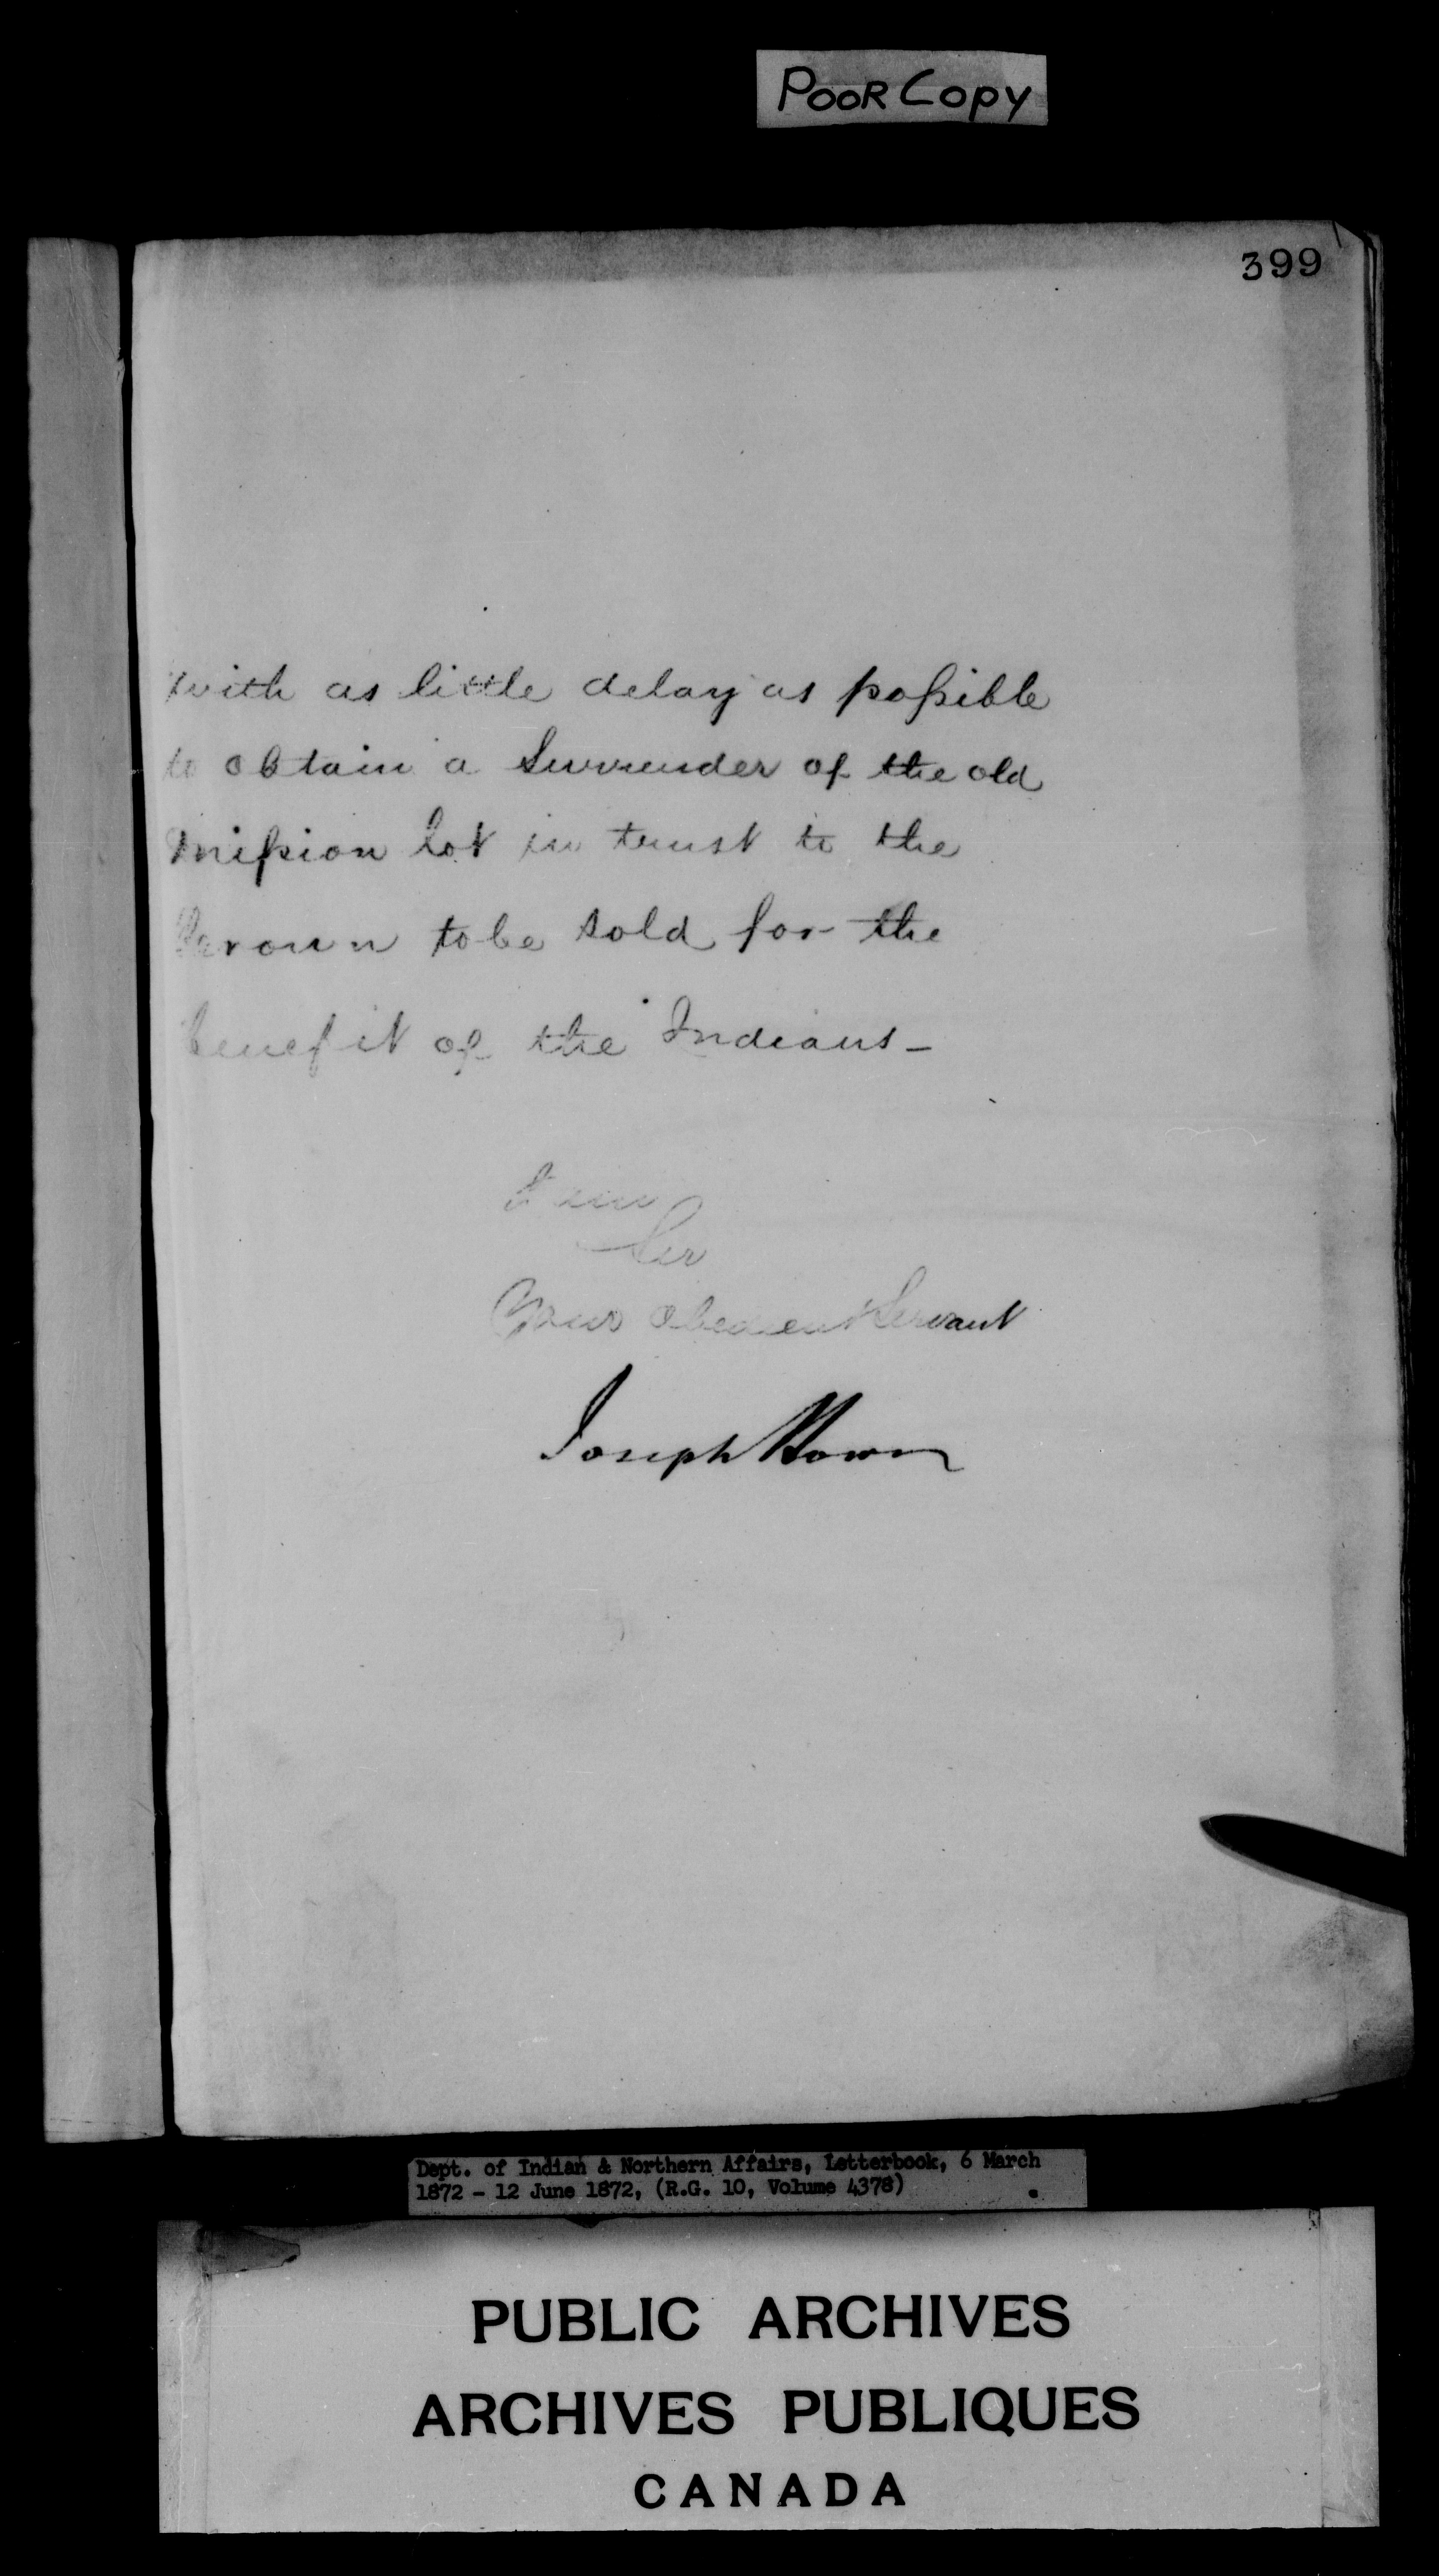 POOR COPY
399
with as little delay as possible
to obtain a Surrender of the old
Mission lot in trust to the
Crown to be sold for the
benefit of the Indians_
I am
Sir
Your obedient Servant
Joseph Howe
Dept. of Indian & Northern Affairs, Letterbook, 6 March
1872 - 12 June 1872, (R.G. 10, Volume 4378)
PUBLIC ARCHIVES
ARCHIVES PUBLIQUES
CANADA